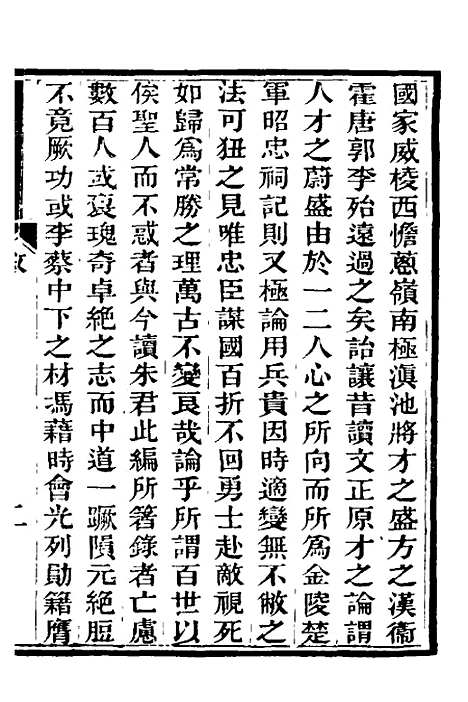 國家威棱西憺蔥嶺南極滇池將才之盛方之漢衞
霍唐郭李殆遠過之矣詒讓昔讀文正原才之論謂
人才之蔚盛由於一二人心之所向而所為金陵楚
軍昭忠祠記則又極論用兵貴因時適變無不敝之
法可狃之見唯忠臣謀國百折不回勇士赴敵視死
如歸為常勝之理萬古不變㫐哉論乎所謂百世以
俟聖人而不惑者與今讀朱君此編所箸錄者亡慮
數百人或褱瑰奇卓絕之志而中道一蹶隕元絕脰
不竟厥功或李蔡中下之材馮藉時會光列勛籍膺
敘
二